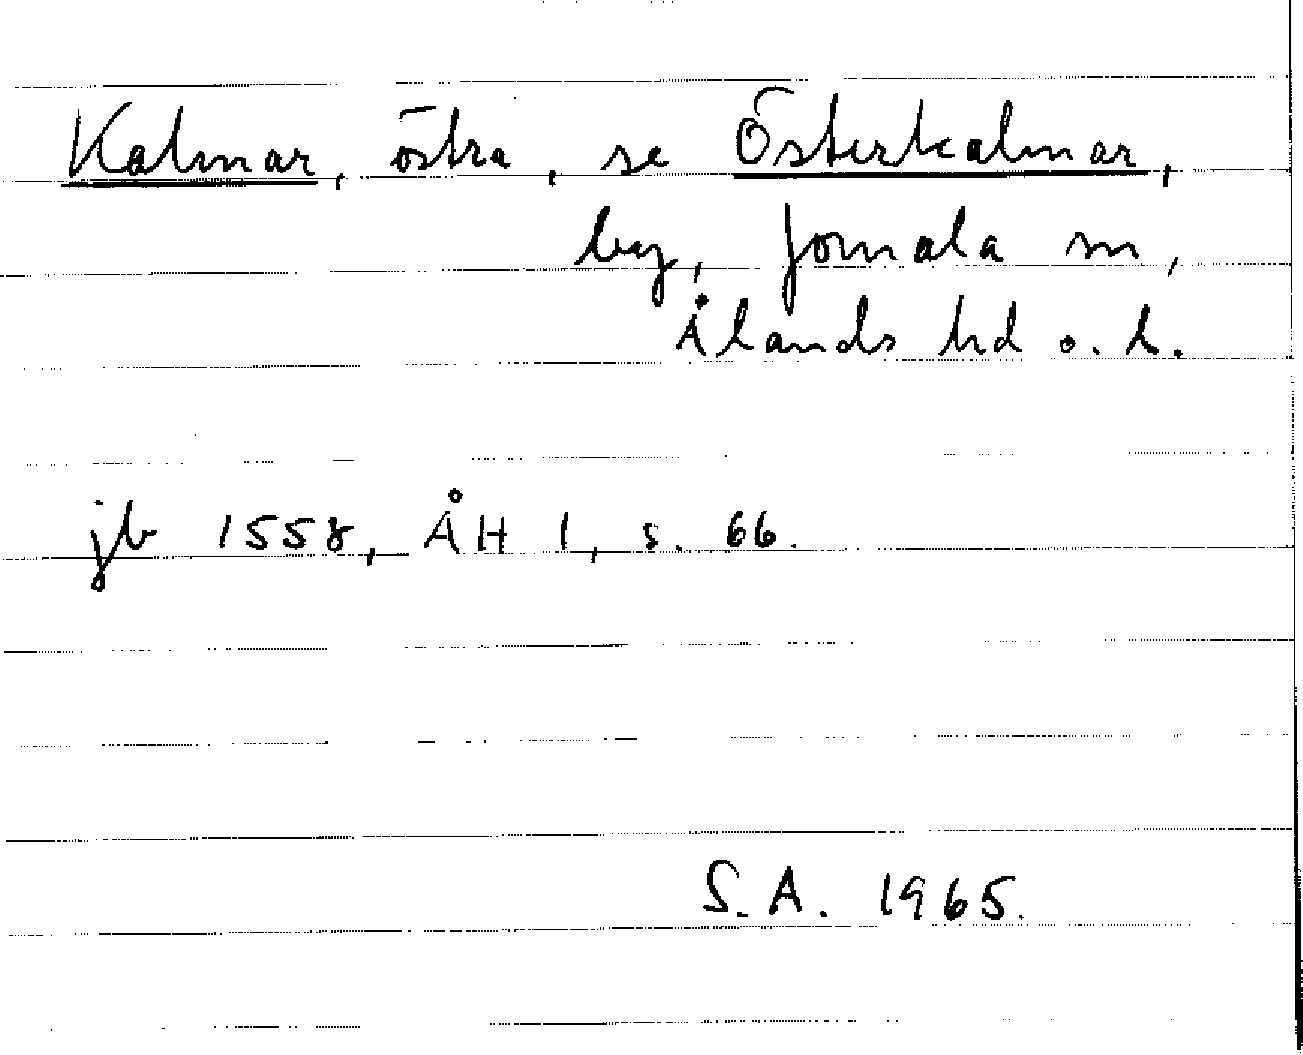 Kalmar, östra, se Österkalmar,
by, Jomala sn,
Ålands hd o. l.
jb 1558, ÅH 1, s. 66.
S.A. 1965.